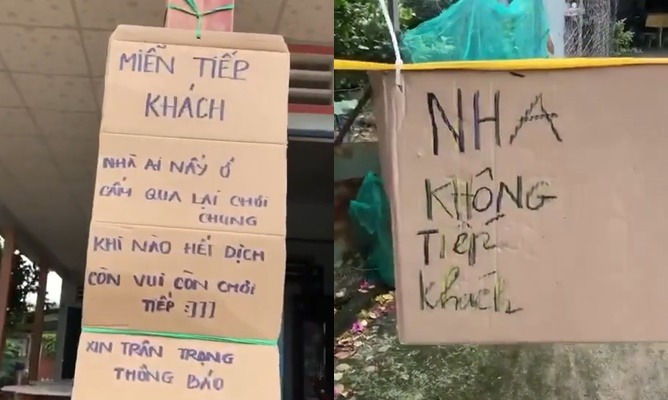 MIỄN TIẾP
KHÁCH
NHÀ AI NẤY Ở
CẤM QUA LẠI CHƠI
CHUNG
KHI NÀO HẾT DỊCH
CÒN VUI CÒN CHƠI
TIẾP :]]]
XIN TRÂN TRỌNG
THÔNG BÁO
NHÀ
KHÔNG
TIẾP
Khách